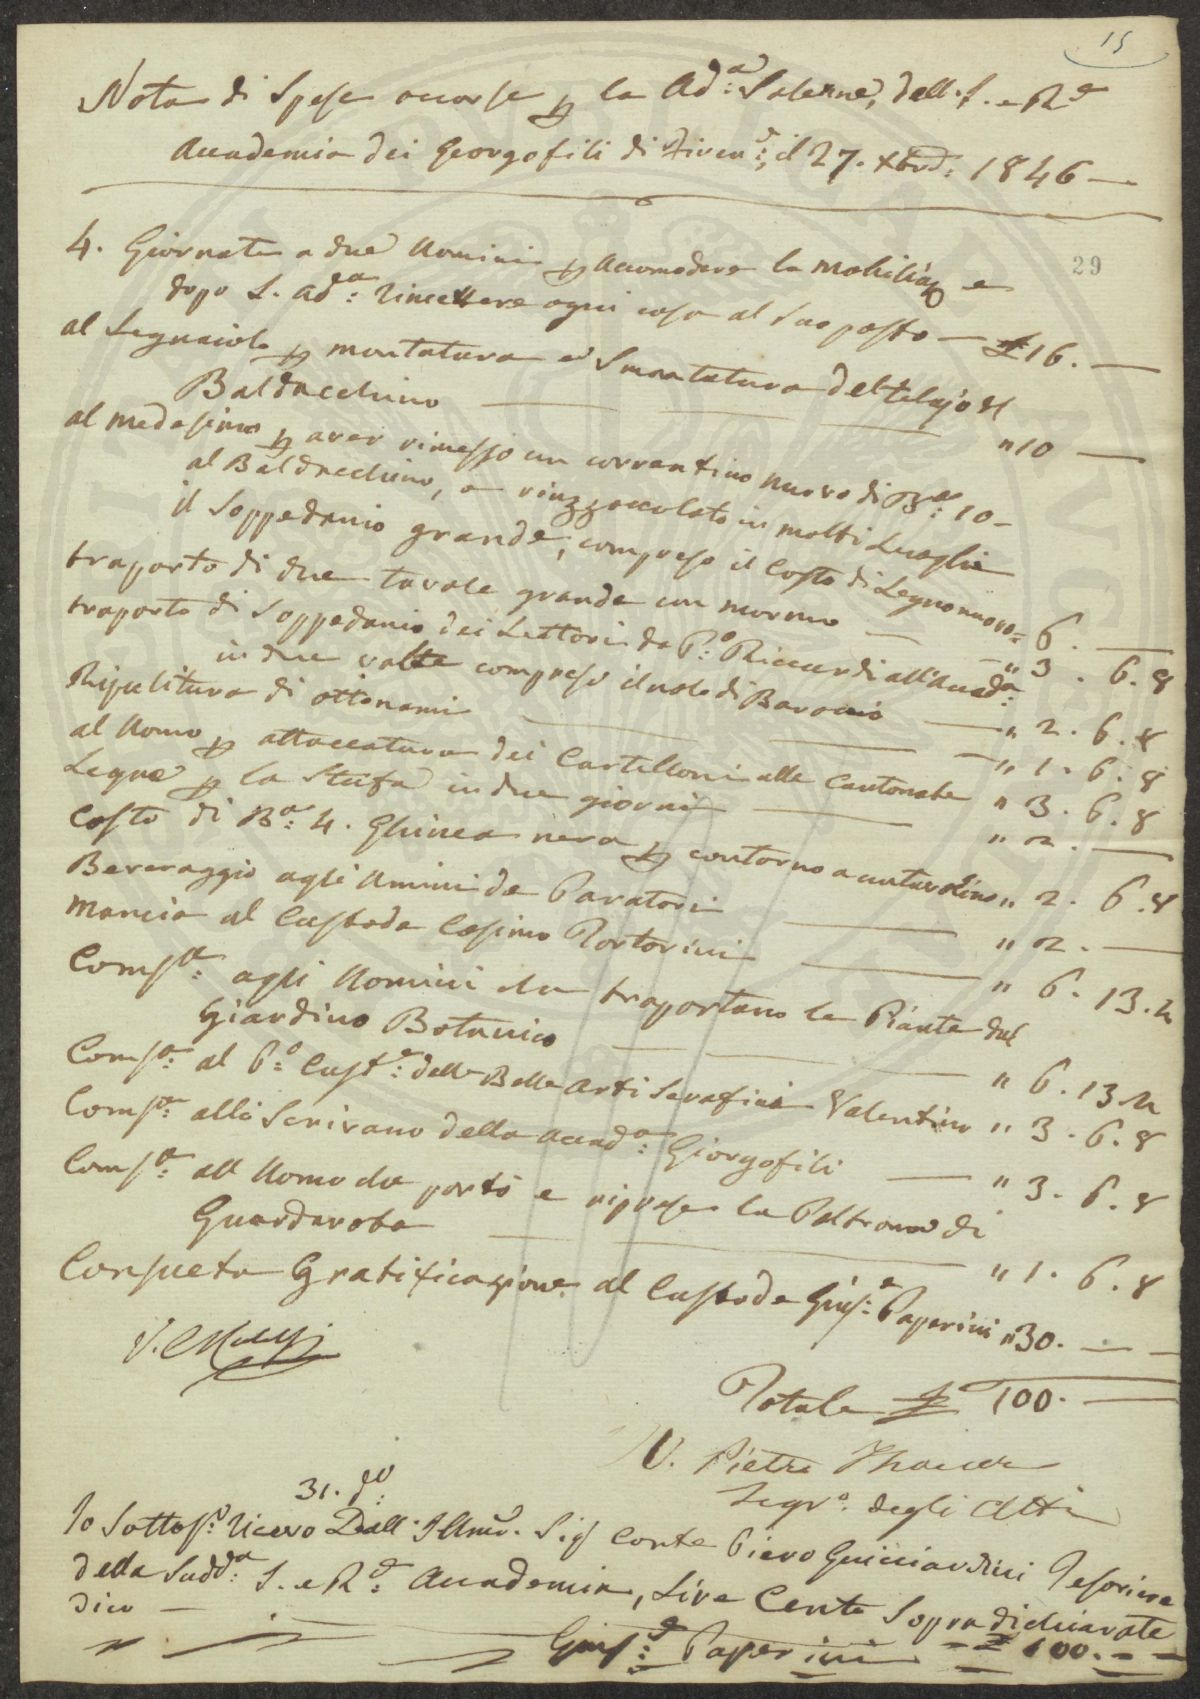 15
Nota di Spese occorse p la Ad:a Solenne, dell'I. e R.e
Accademia dei Georgofili di Firen:e, il 27. Xbre: 1846 —
29
4. Giornate a due Uomini p accomodare la mobilia e
dopo l. Ad:a rimettere ogni cosa al suo posto — £ 16. —
al Legnaiolo p montatura e Smontatura del telajo del
Baldacchino — " 10 —
al medesimo p aver rimesso un correntino nuovo di Ba: 10 -
al Baldacchino, e rinzzoccolato in molti Luoghi
il Soppedanio grande, compreso il Costo di Legno nuovo = 6. —
traporto di due tavole grande con marmo — " 3. 6. 8
traporto di Soppedanio dei Lettori da P:o Riccardi all'Accad:a
in due volte compreso il nolo di Baroccio — " 2. 6. 8
Ripulitura di ottonami — " 1. 6. 8
al Uomo p attaccatura dei Cartelloni alle Cantonate " 3. 6. 8
Legne p la Stufa in due giorni — " 2. —
Costo di Ba: 4. Ghinea nera p contorno a un tavolino " 2. 6. 8
Beveraggio agli Uomini da Paratori — " 2. —
Mancia al Custode Cosimo Tortorini — " 6. 13. 4
Comp:a agli Uomini che traportano le Piante dal
Giardino Botanico — " 6. 13. 4
Comp:a al P:o Cust:e delle Belle Arti Serafini Valentino " 3. 6. 8
Comp:a allo Scrivano della Accad:a Giorgofili — " 3. 6. 8
Comp:a all Uomo che portò e riprese la Poltrona di
Guardaroba — " 1. 6. 8
Consueta Gratificazione al Custode Gius:e Paperini " 30. —
Totale £ 100. —
V. Pietro Thouar
Segr:o degli Atti
31. do:
Io Sottos:o ricevo Dall'Illmo. Sig Conte Piero Guicciardini Tesoriere
della Sudd:a I. e R:e Accademia, Lire Cento Sopra dichiarate
dico — £ 100. —
Gius:e Paperini